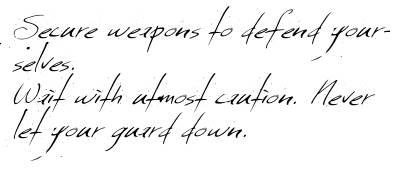 Secure weapons to defend your-
selves.
Wait with utmost caution. Never
let your guard down.